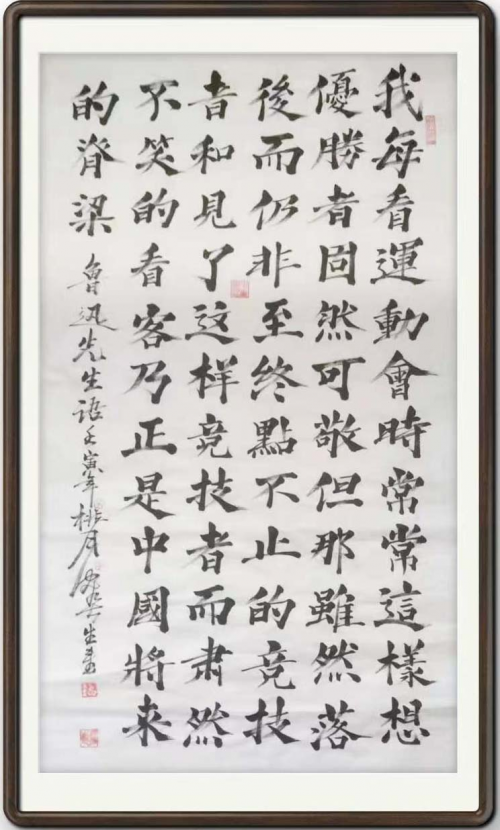 我每看運動會時常常這樣想
優勝者固然可敬但那雖然落
後而仍非至終點不止的竞技
者和見了这样竞技者而肃然
不笑的看客乃正是中國將来
的脊梁
魯迅先生语壬寅年桃月